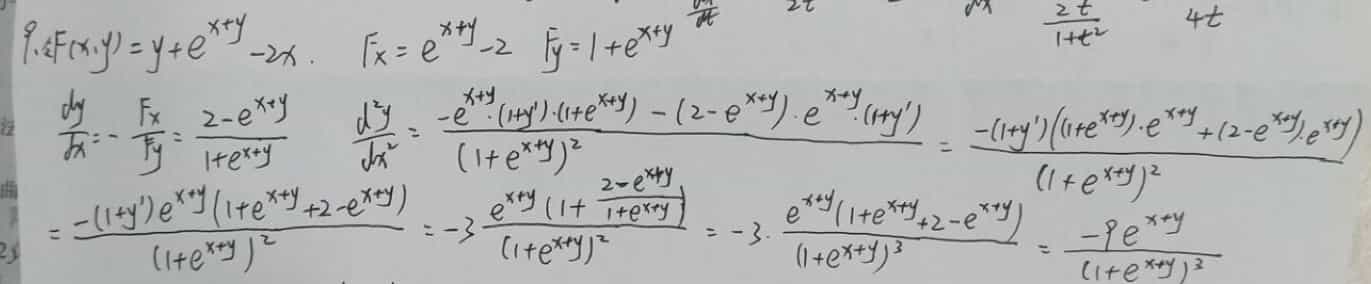 2t   dx   2t/(1+t²)   4t
9. 令F(x,y) = y + e^{x+y} - 2x.   Fx = e^{x+y} - 2   Fy = 1 + e^{x+y}
dy/dx = - Fx/Fy = (2 - e^{x+y})/(1 + e^{x+y})   d²y/dx² = (-e^{x+y}·(1+y')·(1+e^{x+y}) - (2-e^{x+y})·e^{x+y}·(1+y'))/(1+e^{x+y})² = (-(1+y')((1+e^{x+y})·e^{x+y} + (2-e^{x+y})·e^{x+y}))/(1+e^{x+y})²
= (-(1+y')e^{x+y}(1+e^{x+y}+2-e^{x+y}))/(1+e^{x+y})² = -3 (e^{x+y}(1 + (2-e^{x+y})/(1+e^{x+y})))/(1+e^{x+y})² = -3· (e^{x+y}(1+e^{x+y}+2-e^{x+y}))/(1+e^{x+y})³ = (-9e^{x+y})/(1+e^{x+y})³